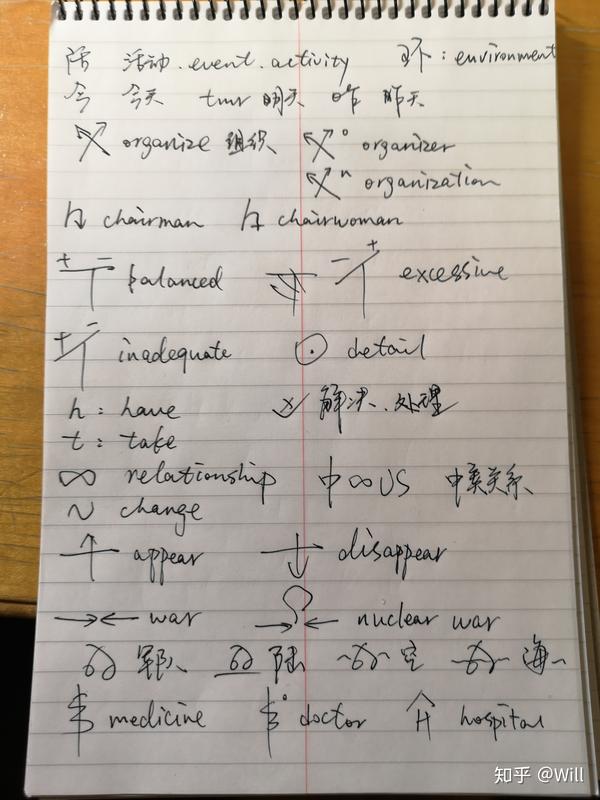 活动.event.activity 环: environment
今 今天 tmr 明天 昨 昨天
organize 组织 o organizer
n organization
chairman chairwoman
+ - balanced - + excessive
+ - inadequate ⊙ detail
h: have 解决.处理
t: take
∞ relationship 中∞US 中美关系
~ change
appear disappear
→← war → ← nuclear war
军队 陆 空 海
medicine o doctor H hospital
知乎 @Will